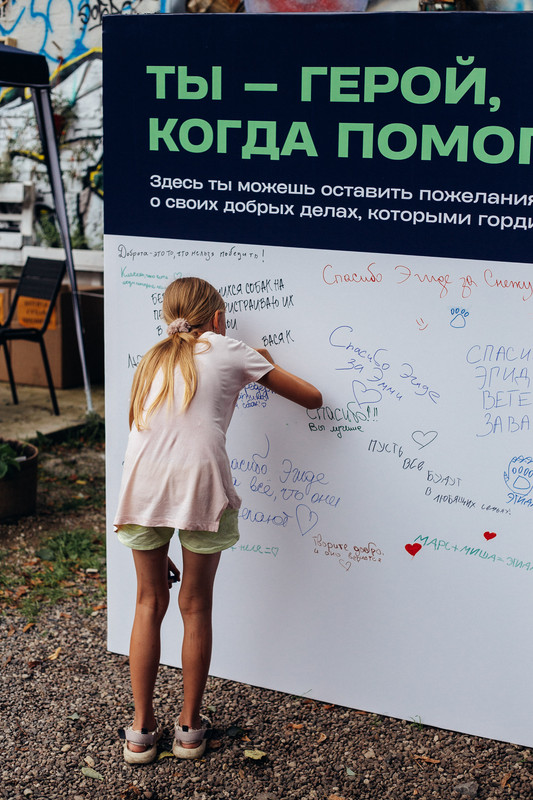 ТЫ – ГЕРОЙ,
КОГДА ПОМОГ
Здесь ты можешь оставить пожелания
о своих добрых делах, которыми горди
Доброта - это то, что нельзя победить!
Спасибо Эгиде за Снежу
ИХСЯ СОБАК НА
РИСТРАИВАЮ ИХ
В
ВАСЯ К
Спасибо Эгиде
за Эмми
СПАСИ
ЭГИД
ВЕТЕ
ЗА ВА
Спасибо!!!
Вы лучшие
ПУСТЬ
ВСЕ
БУДУТ
В ЛЮБЯЩИХ СЕМЬЯХ
ЭГИДА
Эгиде
а всё, что они
делают
Творите добро
и оно вернется
МАРС+МИША=